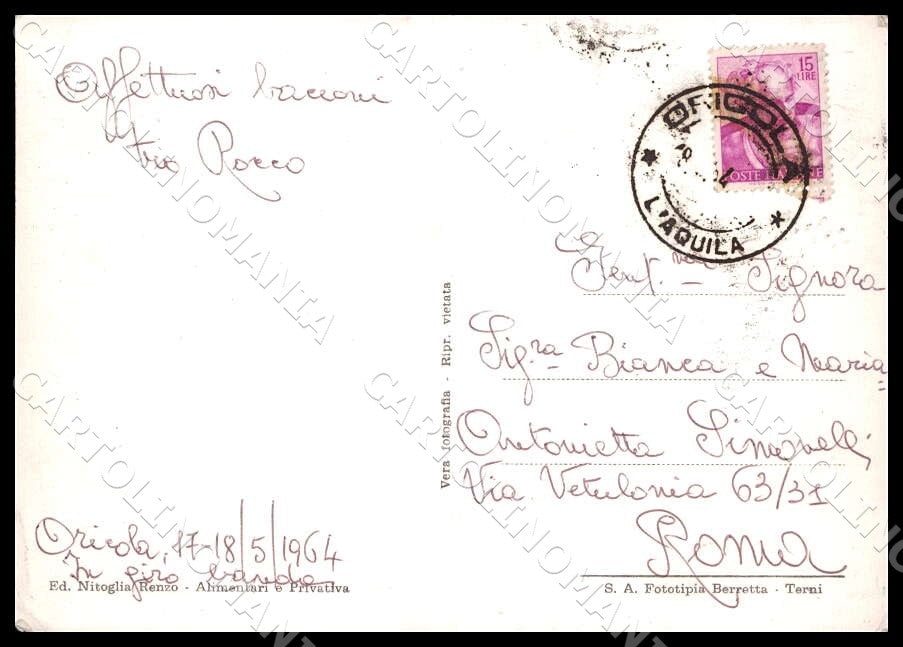 Affettuosi bacioni
Rocco
15
LIRE
POSTE ITALIANE
ORICOLA
* L'AQUILA *
Gent. Signora
Sig.ra Bianca e Maria=
Antonietta Simonelli
Via Vetulonia 63/31
Roma
Vera fotografia - Ripr. vietata
Oricola, 17-18/5/1964
In giro
Ed. Nitoglia Renzo - Alimentari e Privativa
S. A. Fototipia Berretta - Terni
CARTOLINOMANIA
CARTOLINOMANIA
CARTOLINOMANIA
CARTOLINOMANIA
CARTOLINOMANIA
CARTOLINOMANIA